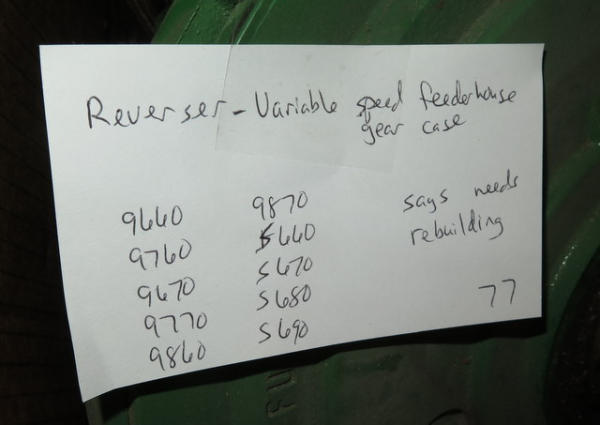 Reverser - Variable speed feederhouse
gear case
9660
9760
9670
9770
9860
9870
S660
S670
S680
S690
says needs
rebuilding
77